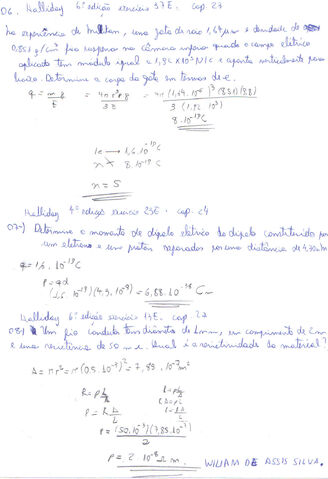 06. Halliday 6ª edição exercício 37E. cap. 23
Na experiência de Millikan, uma gota de raio 1,64 μm e densidade de
0,851 g/cm³ fica suspensa na câmara inferior quando o campo elétrico
aplicado tem módulo igual a 1,92 x 10⁵ N/C e aponta verticalmente para
baixo. Determine a carga da gota em termos de e.
q = m g / E = 4π r³ ρ g / 3E = 4π (1,64.10⁻⁶)³ (851)(9,8) / 3 (1,92 10⁵)
8.10⁻¹⁹ C
1e → 1,6.10⁻¹⁹ C
n 8.10⁻¹⁹ C
n = 5
Halliday 4ª edição exercício 23E. cap. 24
07-) Determine o momento de dipolo elétrico do dipolo constituído por
um elétron e um próton separados por uma distância de 4,30 nm
q = 1,6 . 10⁻¹⁹ C
P = qd
(1,6 10⁻¹⁹)(4,3 . 10⁻⁹) = 6,88.10⁻²⁸ Cm
Halliday 6ª edição exercício 17E. cap 27
08) Um fio condutor tem diâmetro de 1mm, um comprimento de 2m
e uma resistência de 50 m Ω. Qual é a resistividade do material?
A = πr² = π(0,5.10⁻³)² = 7,85.10⁻⁷ m²
R = ρ L/A
ρ = R A/L
ρ = (50.10⁻³)(7,85.10⁻⁷) / 2
ρ = 2 10⁻⁸ Ω m.
WILIAM DE ASSIS SILVA.